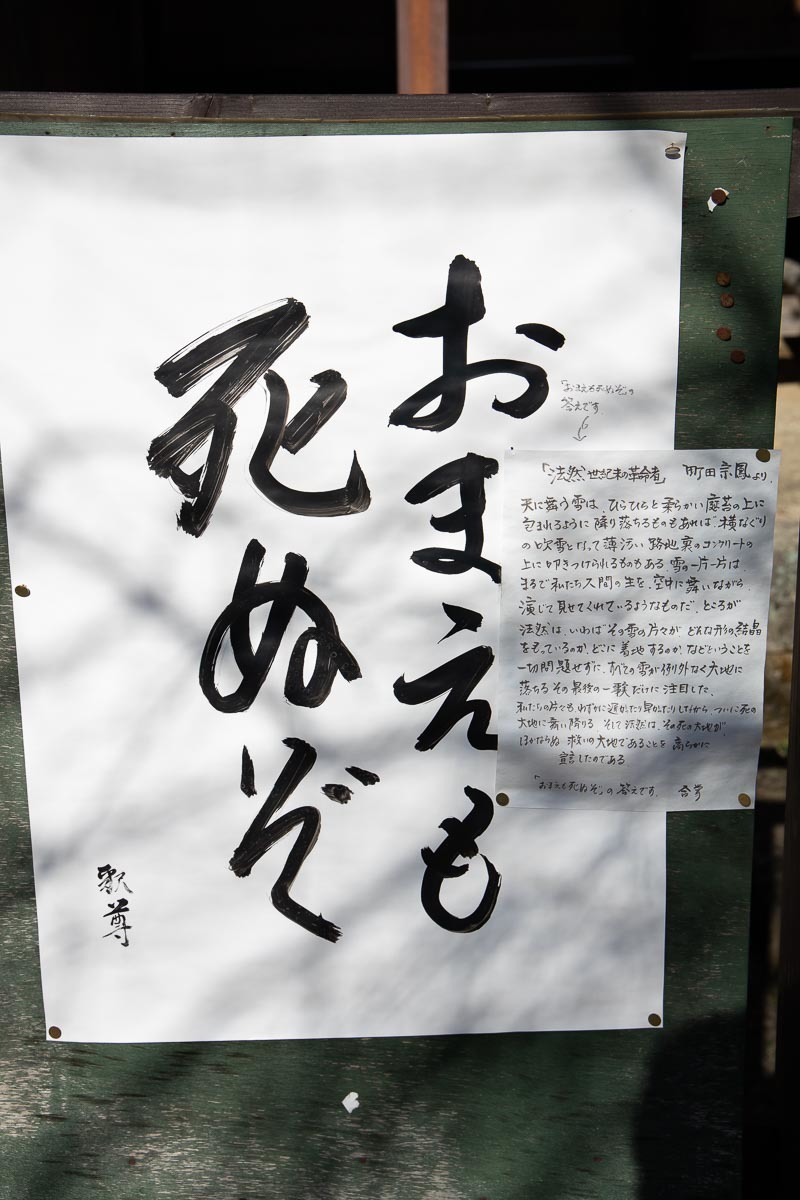 おまえも
死ぬぞ
釈尊
「おまえも死ぬぞ」の
答えです
「法然・世紀末の革命者」 町田宗鳳より
天に舞う雪は、ひらひらと柔らかい庭苔の上に
包まれるように降り落ちるものもあれば、横なぐり
の吹雪となって薄汚い路地裏のコンクリートの
上に叩きつけられるものもある。雪の一片一片は、
まるで私たち人間の生を、空中に舞いながら、
演じて見せてくれているようなものだ。ところが
法然は、いわばその雪の片々が、どんな形の結晶
をもっているのか、どこに着地するのか、などということを
一切問題せずに、すべての雪が例外なく大地に
落ちるその最後の一転だけに注目した。
私たちの片々も、わずかに遅かったり早かったりしながら、ついに死の
大地に舞い降りる。そして法然は、その死の大地が、
ほかならぬ救いの大地であることを高らかに
宣言したのである。
「おまえも死ぬぞ」の答えです。 合掌